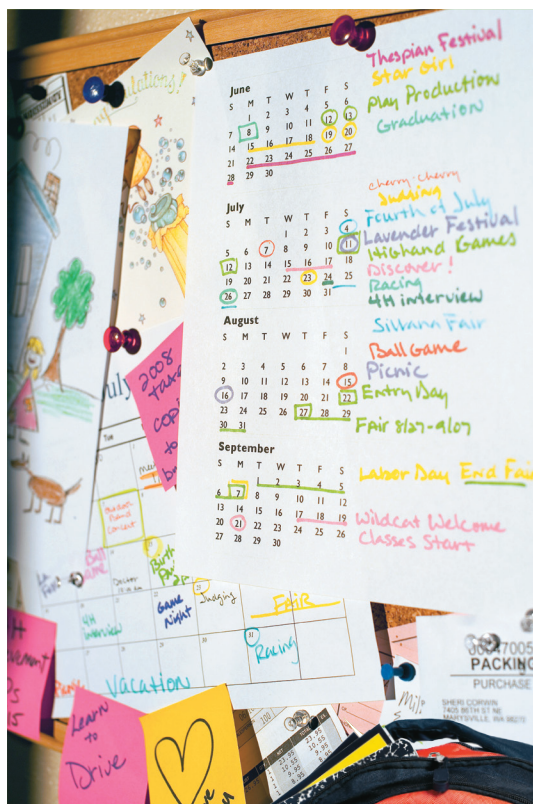 Thespian Festival
Star Girl
Play Production
Graduation
June
S M T W T F S
1 2 3 4 5 6
7 8 9 10 11 12 13
14 15 16 17 18 19 20
21 22 23 24 25 26 27
28 29 30
cherry-cherry
Judging
Fourth of July
Lavender Festival
Highand Games
Discover!
Racing
4H interview
July
S M T W T F S
1 2 3 4
5 6 7 8 9 10 11
12 13 14 15 16 17 18
19 20 21 22 23 24 25
26 27 28 29 30 31
Silvana Fair
Ball Game
Picnic
Entry Day
Fair 8/27-9/07
August
S M T W T F S
1
2 3 4 5 6 7 8
9 10 11 12 13 14 15
16 17 18 19 20 21 22
23 24 25 26 27 28 29
30 31
Labor Day End Fair
Wildcat Welcome
Classes Start
September
S M T W T F S
1 2 3 4 5
6 7 8 9 10 11 12
13 14 15 16 17 18 19
20 21 22 23 24 25 26
27 28 29 30
2008
to
Tue
Concert
Doctor
4H
Interview
Game
Night
Judging
FAIR
31
Racing
Vacation
Learn
to
Drive
47005
PACKING
PURCHASE
SHERI CORWIN
7405 86TH ST NE
MARYSVILLE, WA 98270
23.95
10.55
9.95
8.95